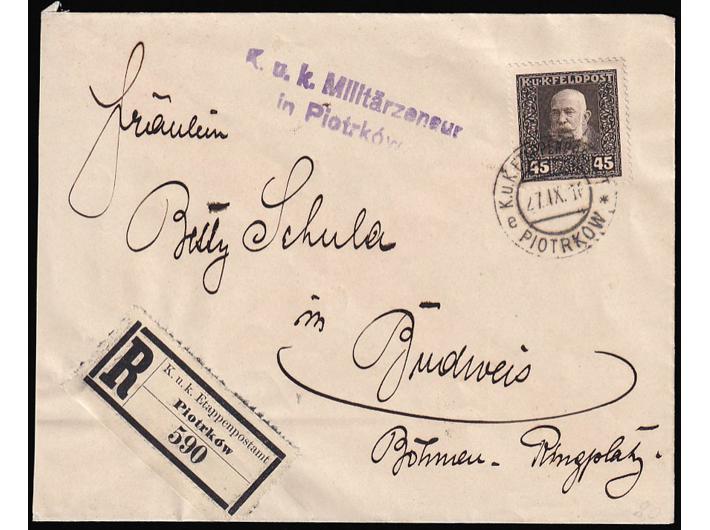 K. u. k. Militärzensur
in Piotrków
K.U.K. FELDPOST
45 45
K.u.K. ETAPPENPOSTAMT
27.IX.16
e PIOTRKÓW *
Fräulein
Betty Schula
in Budweis
Böhmen - Ringplatz.
R
K. u. k. Etappenpostamt
Piotrków
590